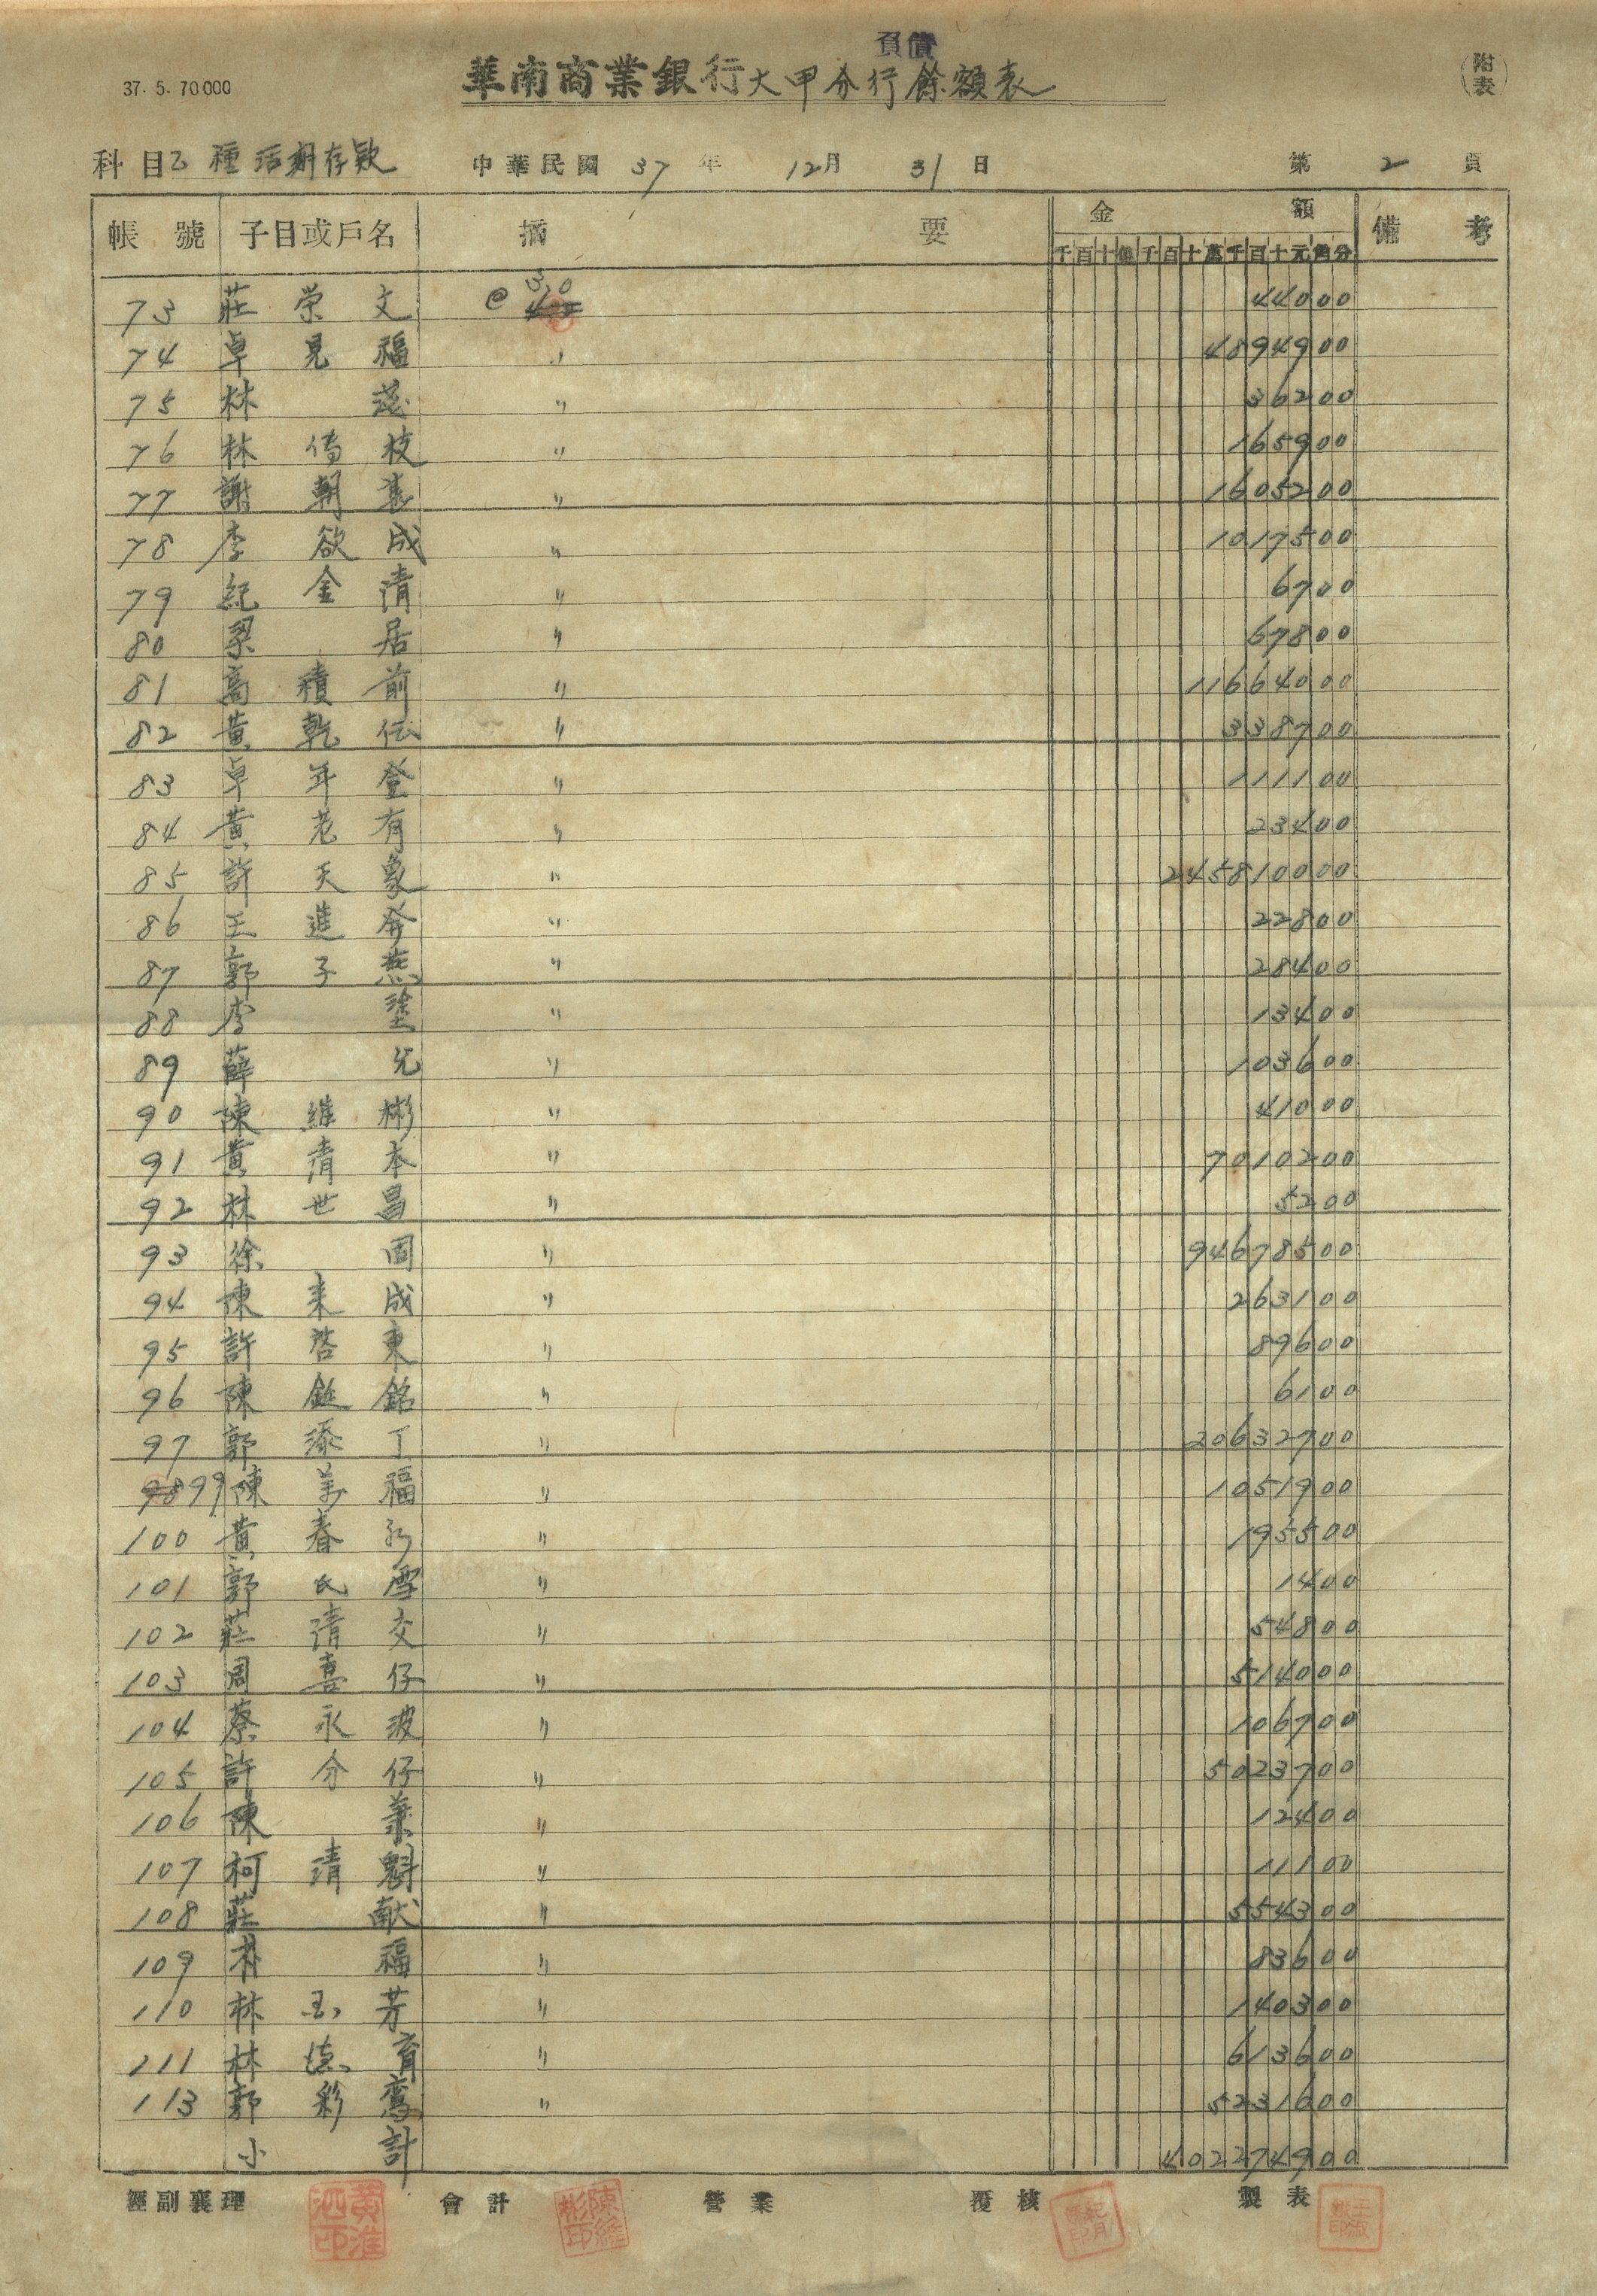 負債
37. 5. 70000
華南商業銀行大甲分行餘額表
(附表)
科目乙種活期存款 中華民國 37 年 12月 31 日 第 2 頁
帳號 子目或戶名 摘要 金額 備考
千百十億千百十萬千百十元角分
73 莊榮文 @ 3.0 44000
74 卓見福 〃 4894900
75 林茂 〃 36200
76 林傳枝 〃 165900
77 謝朝 〃 1605200
78 李欲成 〃 1017500
79 紀金清 〃 6700
80 梁居 〃 67800
81 高積前 〃 11664000
82 黃乾伝 〃 338700
83 卓年登 〃 111100
84 黃老有 〃 23400
85 許天象 〃 245810000
86 王進發 〃 22800
87 郭子燕 〃 28400
88 李塗 〃 13400
89 薛允 〃 103600
90 陳維彬 〃 41000
91 黃清本 〃 7010200
92 林世昌 〃 5200
93 徐固 〃 94678500
94 陳來成 〃 263100
95 許啓東 〃 89600
96 陳銘 〃 6100
97 郭添丁 〃 20632700
98 99 陳萬福 〃 1051900
100 黃春 〃 195500
101 郭氏雪 〃 1400
102 莊清交 〃 54800
103 周喜仔 〃 514000
104 蔡永波 〃 106700
105 許分仔 〃 5023700
106 陳業 〃 12400
107 柯清魁 〃 11100
108 莊献 〃 554300
109 福 〃 83600
110 林玉芳 〃 140300
111 林德育 〃 613600
113 郭彩鸞 〃 5231600
小計 402274900
經副襄理 會計 營業 覆核 製表
黃淮泗印
陳維彬印